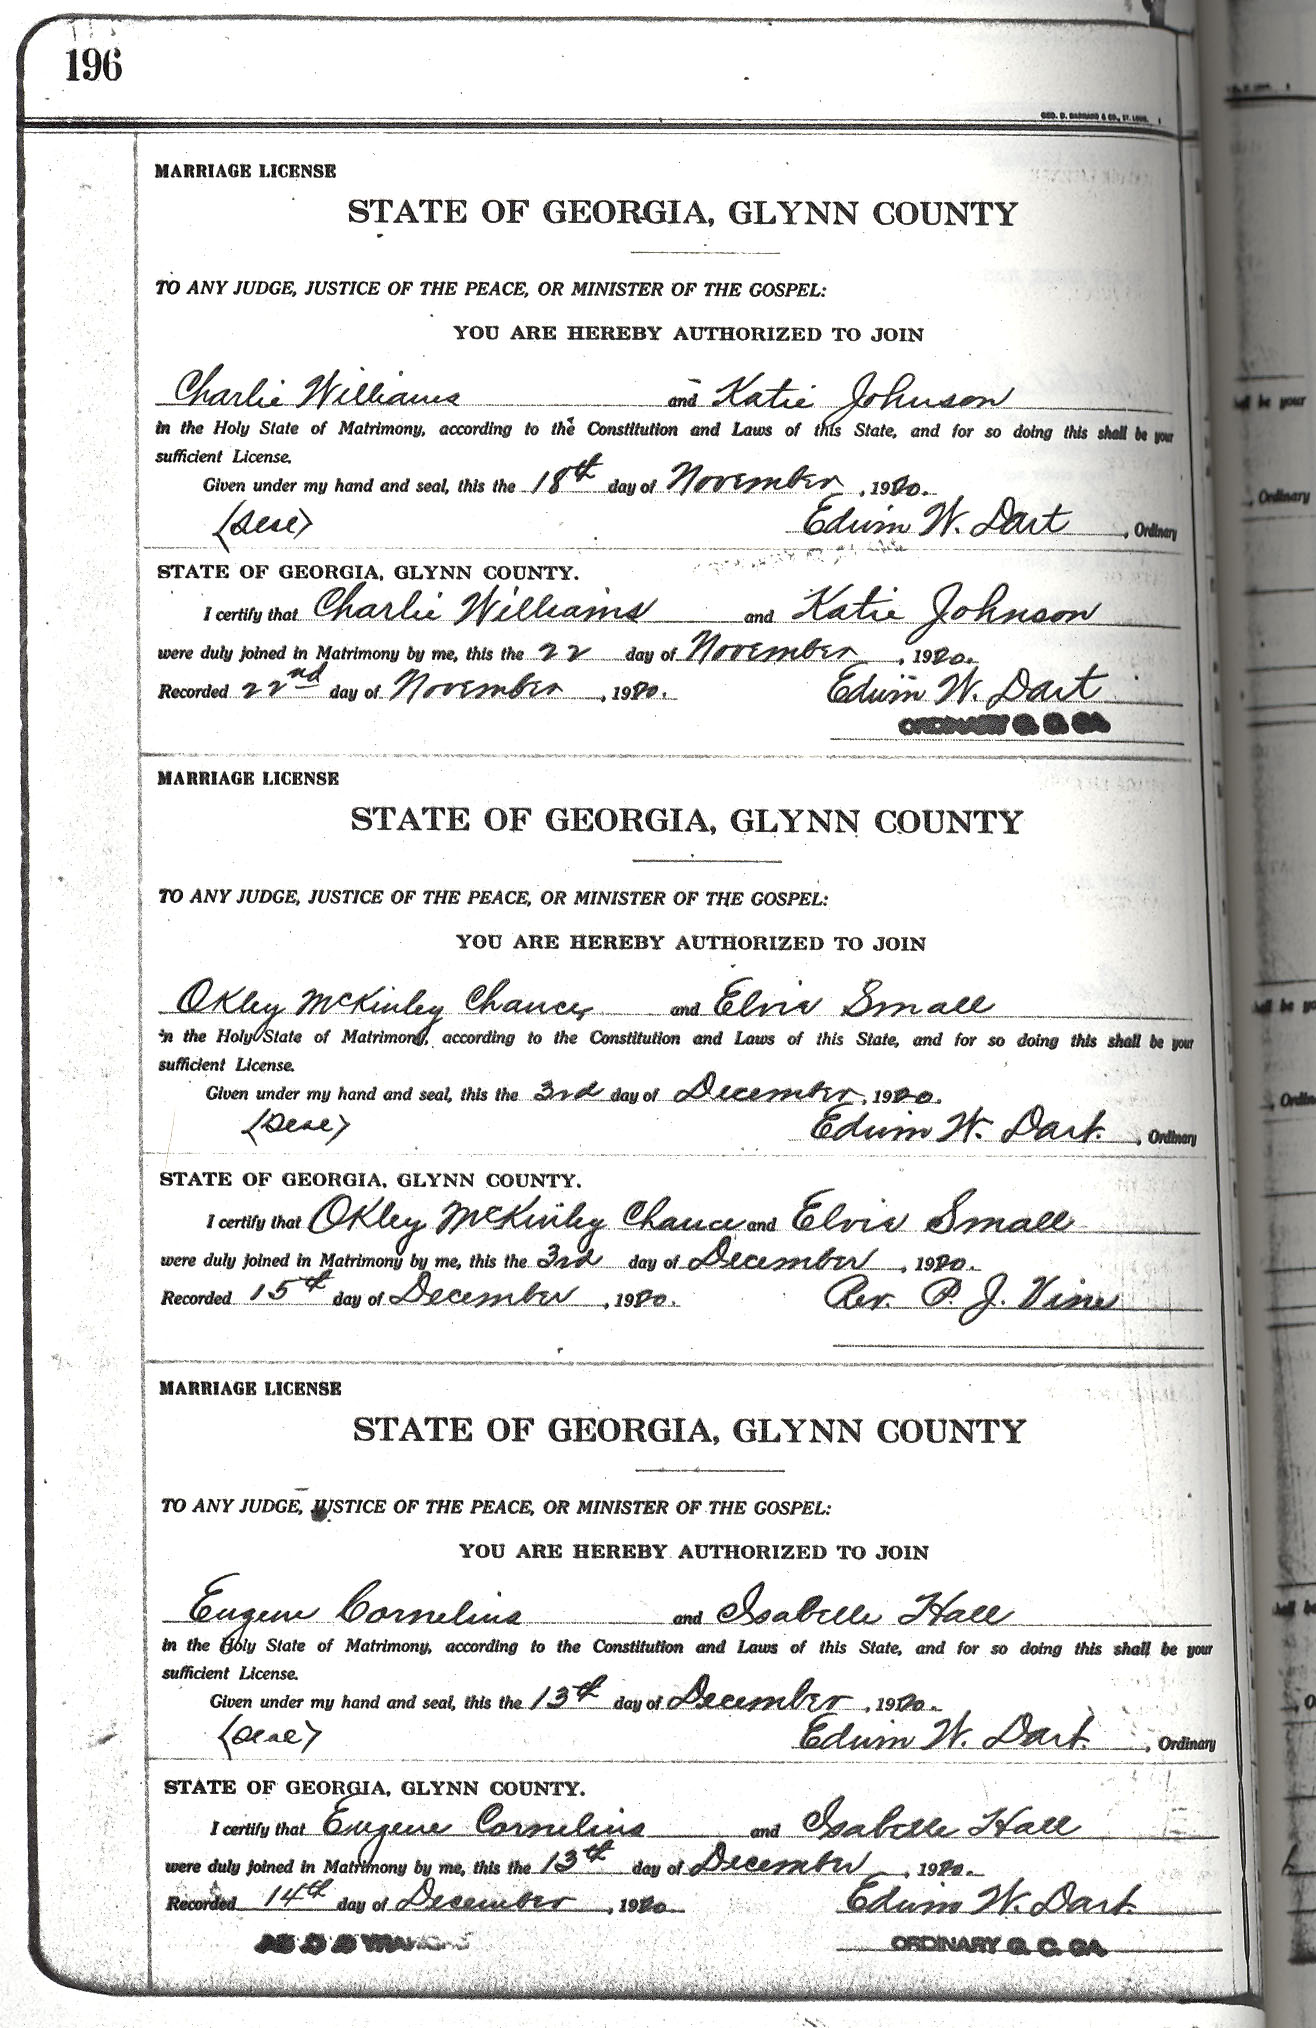 196
GEO. D. BARNARD & CO., ST. LOUIS.
MARRIAGE LICENSE
STATE OF GEORGIA, GLYNN COUNTY
TO ANY JUDGE, JUSTICE OF THE PEACE, OR MINISTER OF THE GOSPEL:
YOU ARE HEREBY AUTHORIZED TO JOIN
Charlie Williams and Katie Johnson
in the Holy State of Matrimony, according to the Constitution and Laws of this State, and for so doing this shall be your
sufficient License.
Given under my hand and seal, this the 18th day of November, 1920.
(Seal) Edwin W. Dart, Ordinary
STATE OF GEORGIA, GLYNN COUNTY.
I certify that Charlie Williams and Katie Johnson
were duly joined in Matrimony by me, this the 22 day of November, 1920.
Recorded 22nd day of November, 1920. Edwin W. Dart
ORDINARY G. C. GA
MARRIAGE LICENSE
STATE OF GEORGIA, GLYNN COUNTY
TO ANY JUDGE, JUSTICE OF THE PEACE, OR MINISTER OF THE GOSPEL:
YOU ARE HEREBY AUTHORIZED TO JOIN
Okley McKinley Chance and Elvie Small
in the Holy State of Matrimony, according to the Constitution and Laws of this State, and for so doing this shall be your
sufficient License.
Given under my hand and seal, this the 3rd day of December, 1920.
(Seal) Edwin W. Dart. , Ordinary
STATE OF GEORGIA, GLYNN COUNTY.
I certify that Okley McKinley Chance and Elvie Small
were duly joined in Matrimony by me, this the 3rd day of December, 1920.
Recorded 15th day of December, 1920. Rev. P. J. Vine
MARRIAGE LICENSE
STATE OF GEORGIA, GLYNN COUNTY
TO ANY JUDGE, JUSTICE OF THE PEACE, OR MINISTER OF THE GOSPEL:
YOU ARE HEREBY AUTHORIZED TO JOIN
Eugene Cornelius and Isabelle Hall
in the Holy State of Matrimony, according to the Constitution and Laws of this State, and for so doing this shall be your
sufficient License.
Given under my hand and seal, this the 13th day of December, 1920.
(Seal) Edwin W. Dart. , Ordinary
STATE OF GEORGIA, GLYNN COUNTY.
I certify that Eugene Cornelius and Isabelle Hall
were duly joined in Matrimony by me, this the 13th day of December, 1920.
Recorded 14th day of December, 1920. Edwin W. Dart.
ORDINARY G. C. GA